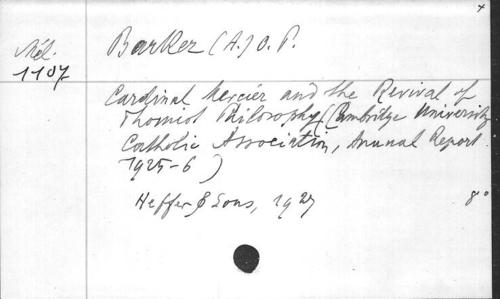 Mél.
1107
Barker (A.) O. P.
Cardinal Mercier and the Revival of
Thomist Philosophy (Cambridge University
Catholic Association, Annual Report
1925-6)
Heffer & Sons, 1927
8°